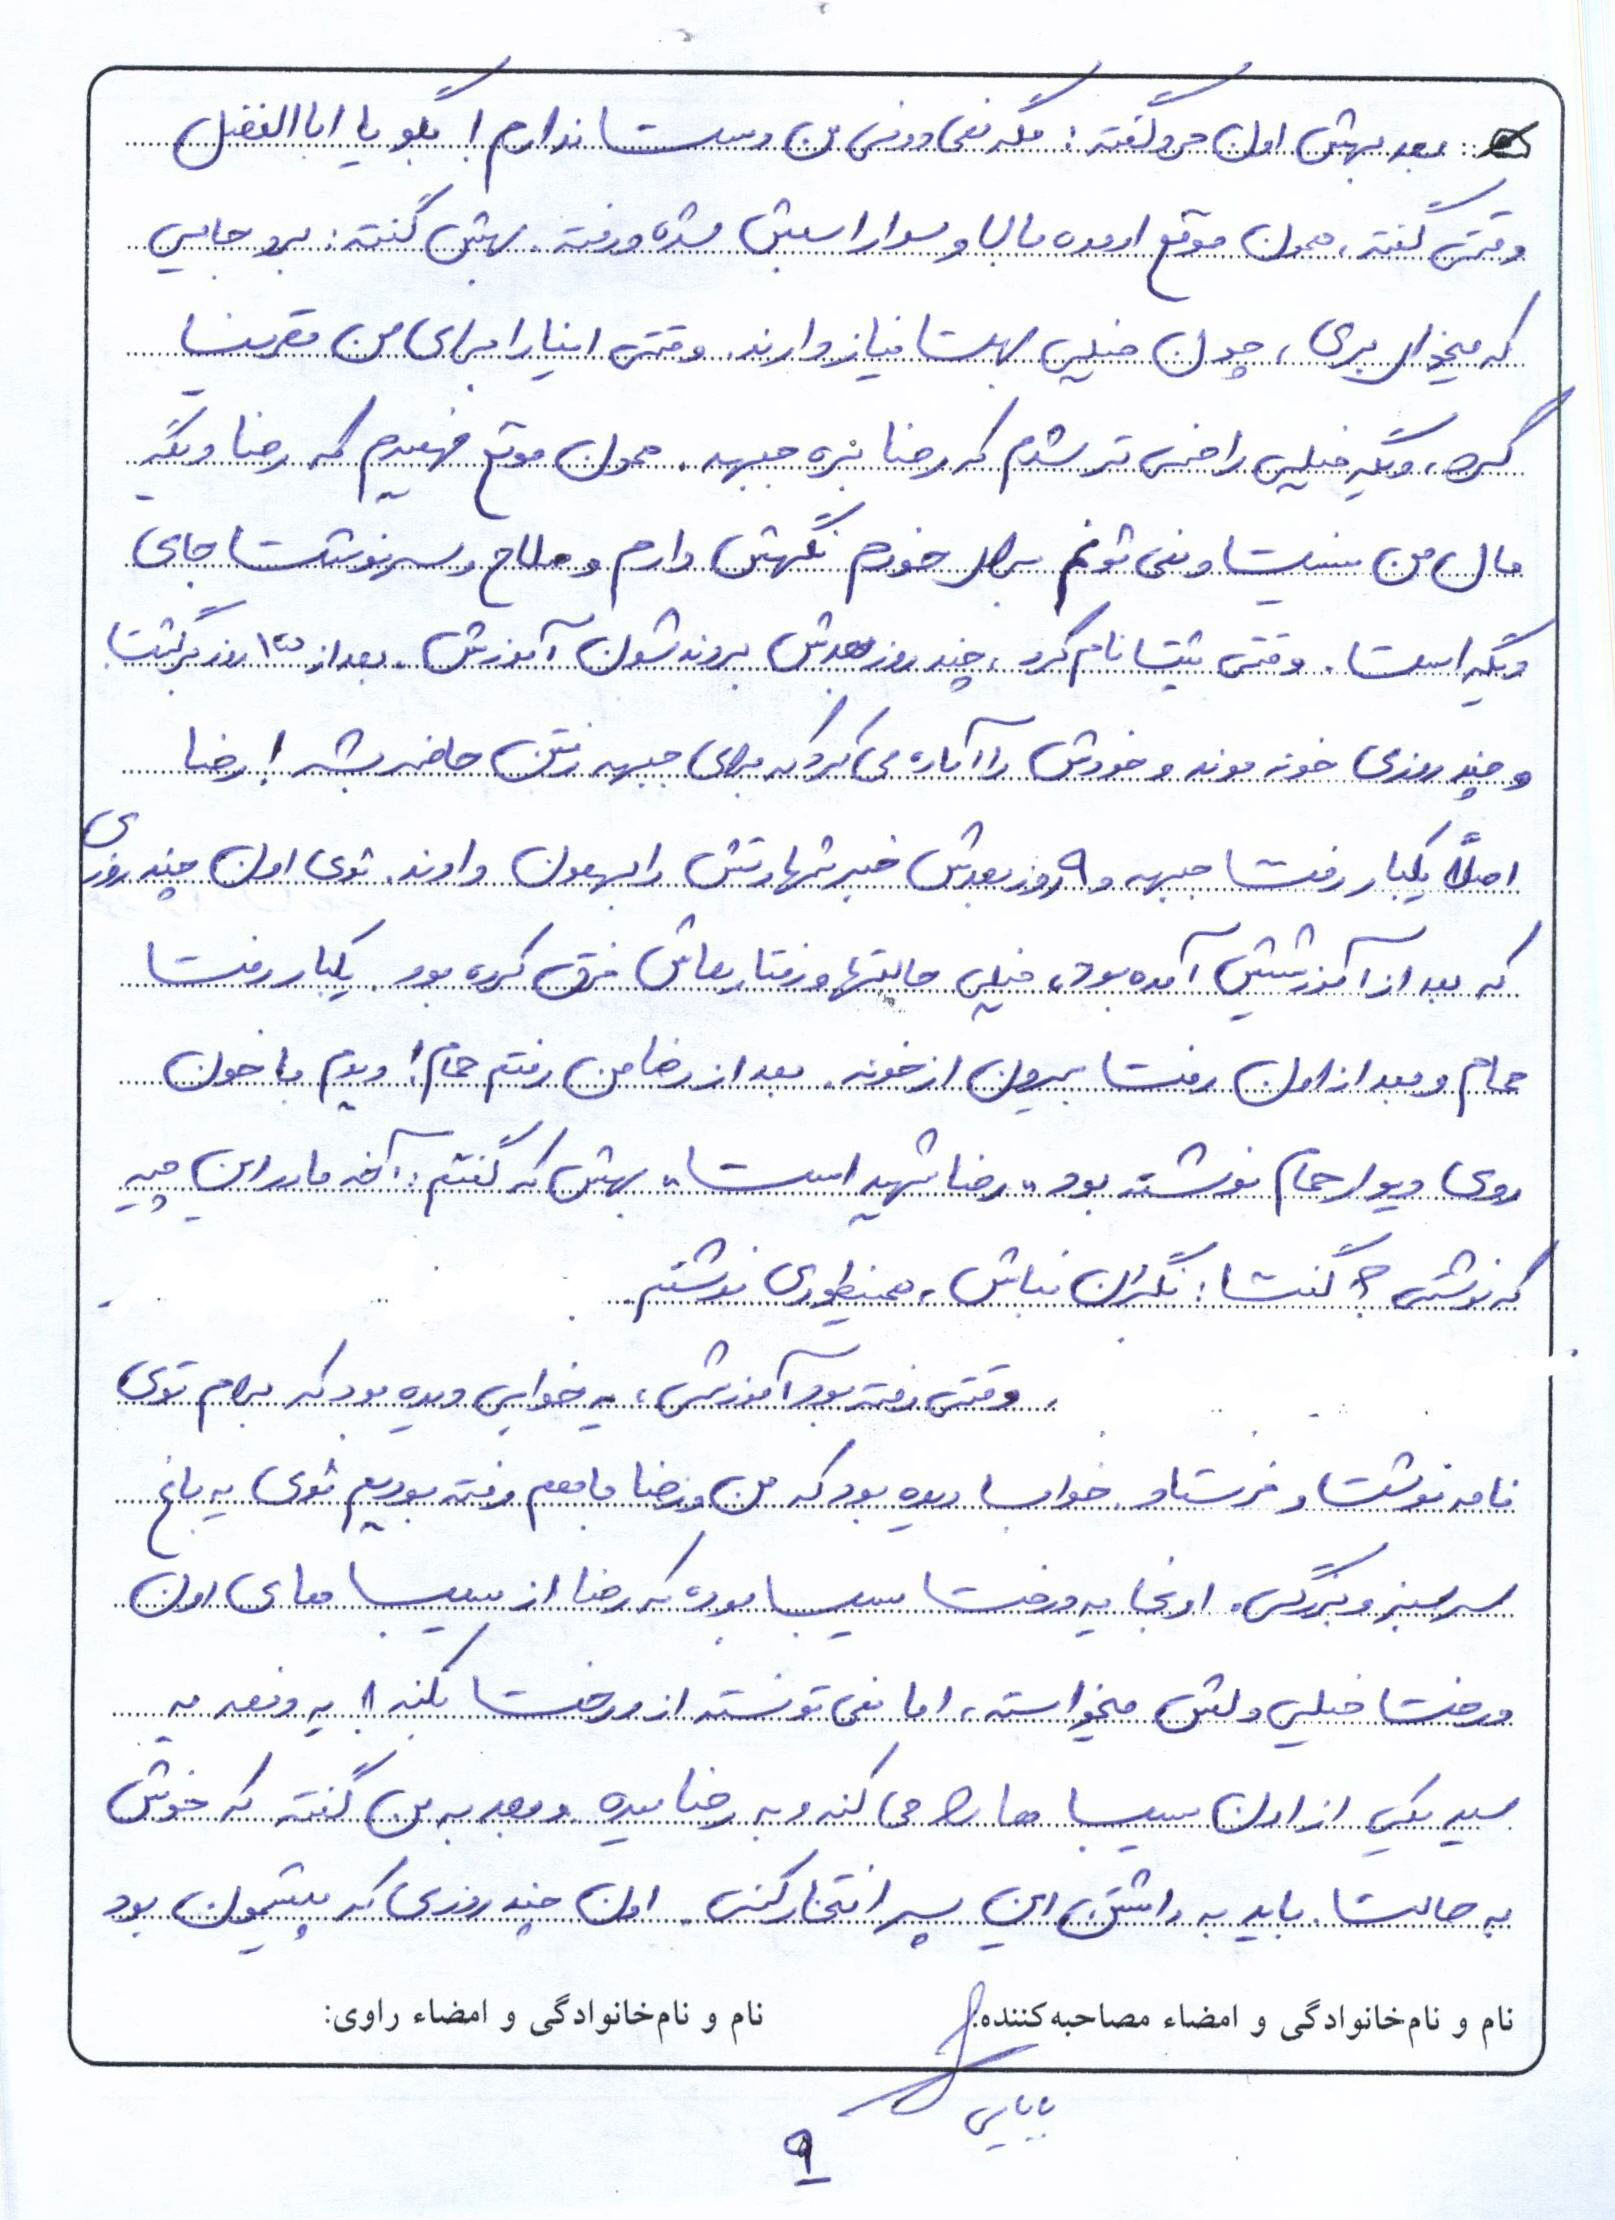 بعد بهش اون مرد گفته: مگه نمی دونی من دست ندارم! بگو یا اباالفضل
وقتی گفته، همون موقع اومده بالا و سوار اسبش شده و رفته. بهش گفته: برو جایی
که میخوای بری، چون خیلی بهت نیاز دارند. وقتی اینا را برای من تعریف
کرد، دیگه خیلی راضی تر شدم که رضا بره جبهه. همون موقع فهمیدم که رضا دیگه
مال من نیست و نمی تونم برای خودم نگهش دارم و صلاح و سرنوشت جای
دیگه است. وقتی ثبت نام کرد، چند روز بعدش بردندشون آموزش. بعد از ۱۵ روز برگشت
و چند روزی خونه موند و خودش را آماده می کرد که برای جبهه رفتن حاضر بشه! رضا
اصلاً یکبار رفت جبهه و ۹ روز بعدش خبر شهادتش را بهمون دادند. توی اون چند روزی
که بعد از آموزشیش آمده بود، خیلی حالتها و رفتارهاش فرق کرده بود. یکبار رفت
حمام و بعد از اون رفت بیرون از خونه. بعد از رضا من رفتم حمام! دیدم با خون
روی دیوار حمام نوشته بود "رضا شهید است" بهش که گفتم: آخه مادر این چیه
که نوشتی؟ گفت: نگران نباش، همینطوری نوشتم.
وقتی رفته بود آموزشی، یه خوابی دیده بود که برام توی
نامه نوشت و فرستاد. خواب دیده بود که من و رضا باهم رفته بودیم توی یه باغ
سرسبز و بزرگی. اونجا یه درخت سیب بوده که رضا از سیب های اون
درخت خیلی دلش میخواسته، اما نمی تونسته از درخت بکنه! یه دفعه یه
سید یکی از اون سیب ها را می کنه و به رضا میده و بعد به من گفته که خوش
به حالت. باید به داشتن این پسر افتخار کنی. اون چند روزی که پیشمون بود
نام و نام‌خانوادگی و امضاء مصاحبه‌کننده: نام و نام‌خانوادگی و امضاء راوی:
بابایی
۹